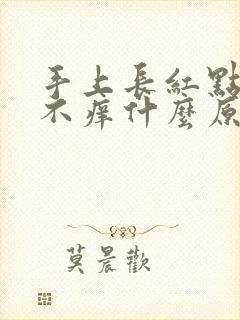 手上長紅點
不痒什麼原
莫晨歡